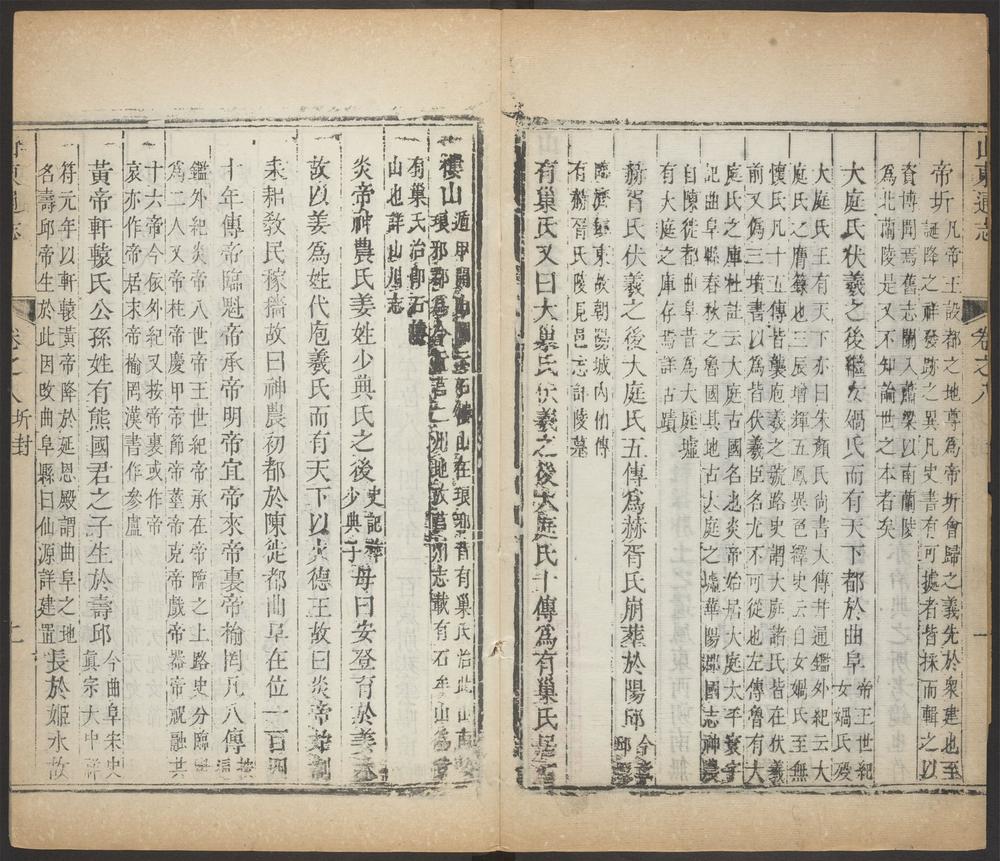 山東通志 卷之八 一
帝圻 凡帝王設都之地尊爲帝圻會歸之義先於衆建也至
誕降之祥發跡之異凡史書有可據者皆採而輯之以
資博聞焉舊志闌入蕭梁以南蘭陵
爲北蘭陵是又不知論世之本者矣
大庭氏伏羲之後繼女媧氏而有天下都於曲阜 帝王世紀
女媧氏歿
大庭氏王有天下亦曰朱顏氏尚書大傳并通鑑外紀云大
庭氏之膺籙也三辰增輝五鳳異色繹史云自女媧氏至無
懷氏凡十五傳皆襲庖犧之號路史謂大庭諸氏皆在伏羲
前又爲三墳書以爲皆伏羲臣名尤不可從也左傳魯有大
庭氏之庫杜註云大庭古國名也炎帝始居大庭太平寰宇
記曲阜縣春秋之魯國其地古大庭之墟華陽國志神農
自陳徙都曲阜昔爲大庭墟
有大庭之庫存焉詳古蹟
赫胥氏伏羲之後大庭氏五傳爲赫胥氏崩葬於陽
東故朝陽城内伯傳
有赫胥氏陵見邑志詳陵墓
有巢氏又曰大巢氏伏羲之後大庭氏十傳爲有巢氏
樓山 遁甲開山 石樓山在琅 昔有巢氏治此山
琅邪郡 志載有石牟山爲
有巢氏治卽石
山也詳山川志
炎帝神農氏姜姓少典氏之後 史記
少典子 母曰安登育於姜水
故以姜爲姓代庖羲氏而有天下以火德王故曰炎帝始制
耒耜敎民稼穡故曰神農初都於陳徙都曲阜在位一百四
十年傳帝臨魁帝承帝明帝宜帝來帝裏帝榆罔凡八傳 按
通
鑑外紀炎帝八世帝王世紀帝承在帝臨之上路史分臨魁
爲二人又帝柱帝慶甲帝節帝莖帝克帝戲帝器帝祝融共
十六帝今依外紀又按帝裏或作帝
哀亦作帝居末帝榆罔漢書作參盧
黃帝軒轅氏公孫姓有熊國君之子生於壽邱 今曲阜宋史
眞宗大中祥
符元年以軒轅黃帝降於延恩殿謂曲阜之地
名壽邱帝生於此因改曲阜縣曰仙源詳建置 長於姬水故
東通志 卷之八 圻封 一